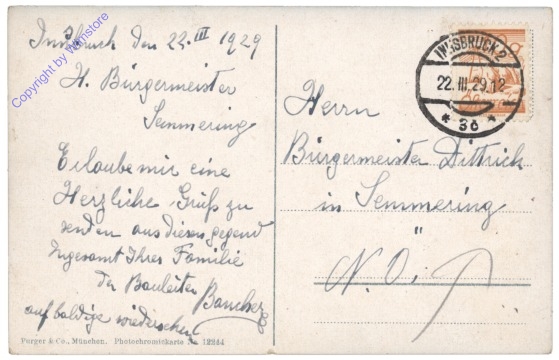 Innsbruck den 22. III 1929
H. Bürgermeister
Semmering
Erlaube mir eine
Herzliche Grüß zu
senden aus diesen gegend
Ingesamt Ihres Familie
der Bauleiter
auf baldige wiedersehen
Purger & Co., München. Photochromiekarte Nr. 12244
INNSBRUCK 2
22. III. 29. 12
* 3c *
Herrn
Bürgermeister Dittrich
in Semmering
N. Ö.
Copyright by wiamstore